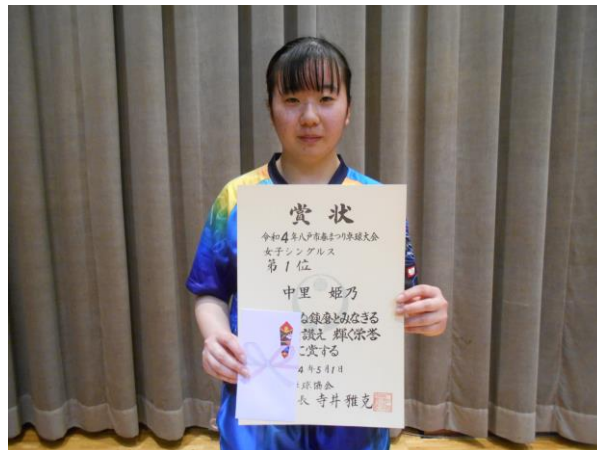 賞状
令和4年八戸市春まつり卓球大会
女子シングルス
第1位
中里 姫乃
な錬磨とみなぎる
讃え 輝く栄誉
に賞する
4年5月1日
球協会
長 寺井雅克